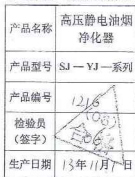 产品名称 高压静电油烟
净化器
产品型号 SJ—YJ—系列
产品编号 1216
检验员
(签字)
生产日期 13年11月1日